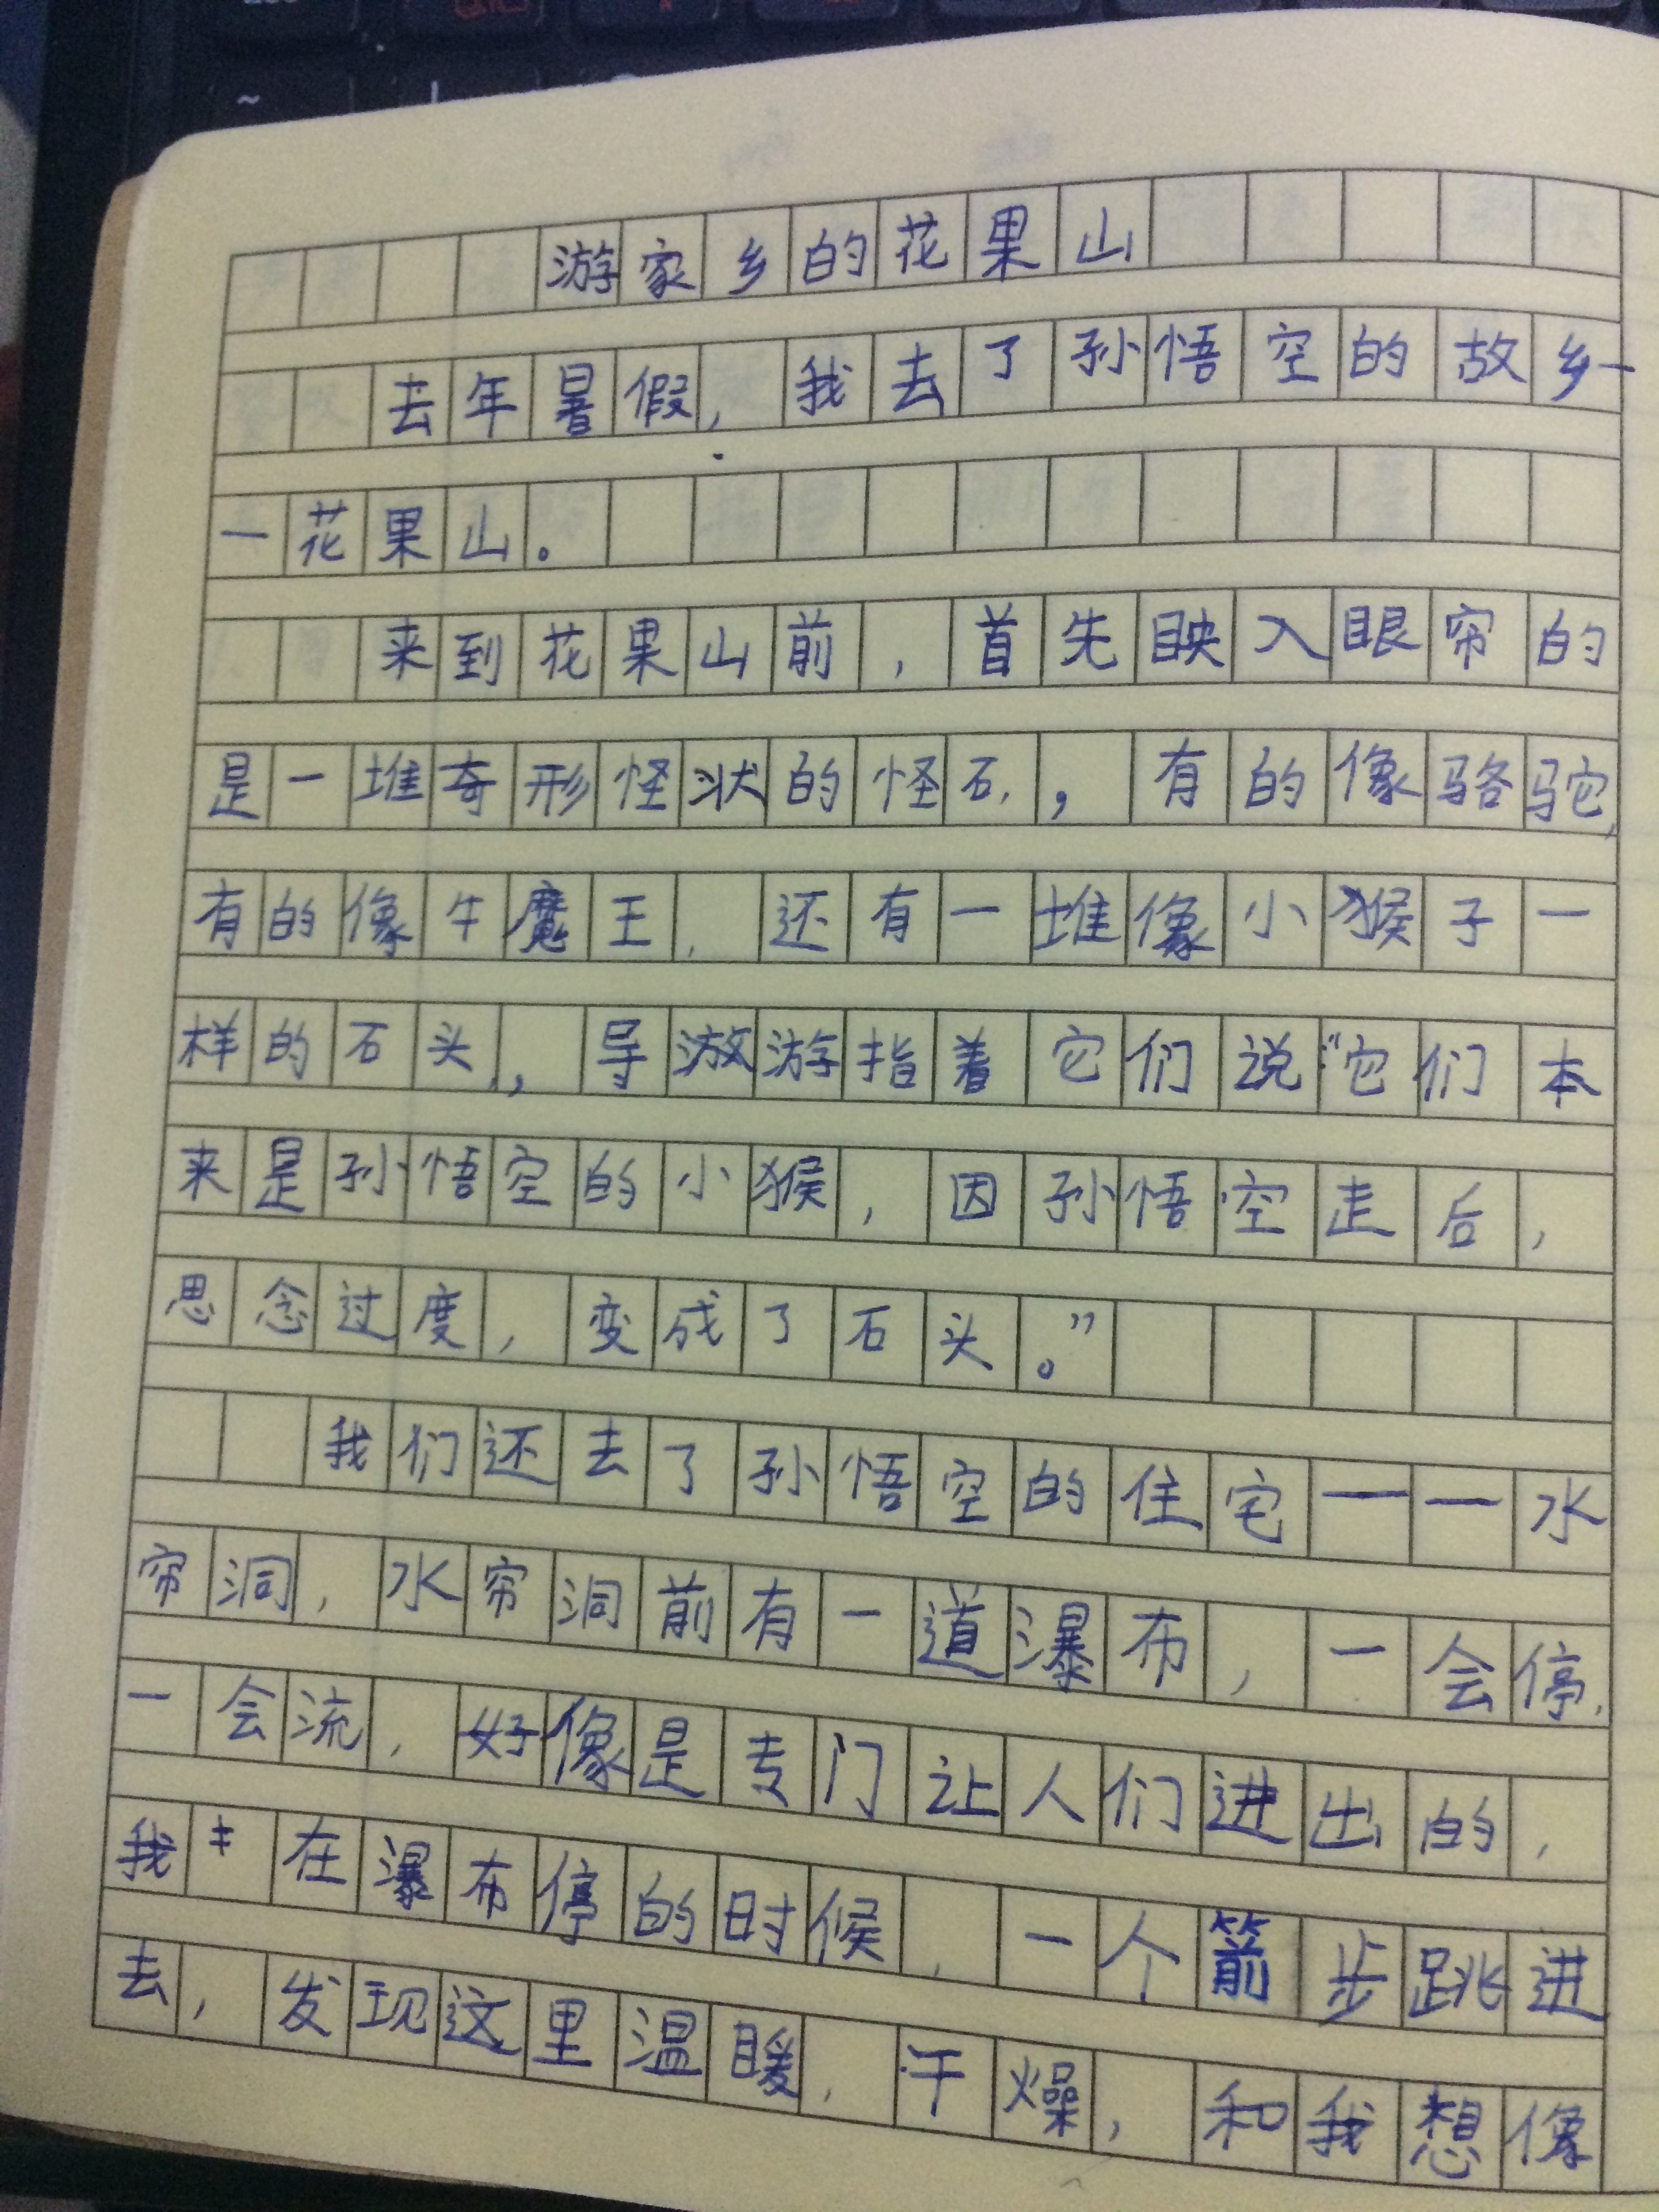 游家乡的花果山
去年暑假，我去了孙悟空的故乡—
—花果山。
来到花果山前，首先映入眼帘的
是一堆奇形怪状的怪石，有的像骆驼，
有的像牛魔王，还有一堆像小猴子一
样的石头，导游游指着它们说“它们本
来是孙悟空的小猴，因孙悟空走后，
思念过度，变成了石头。”
我们还去了孙悟空的住宅——水
帘洞，水帘洞前有一道瀑布，一会停，
一会流，好像是专门让人们进出的，
我在瀑布停的时候，一个箭步跳进
去，发现这里温暖，干燥，和我想像